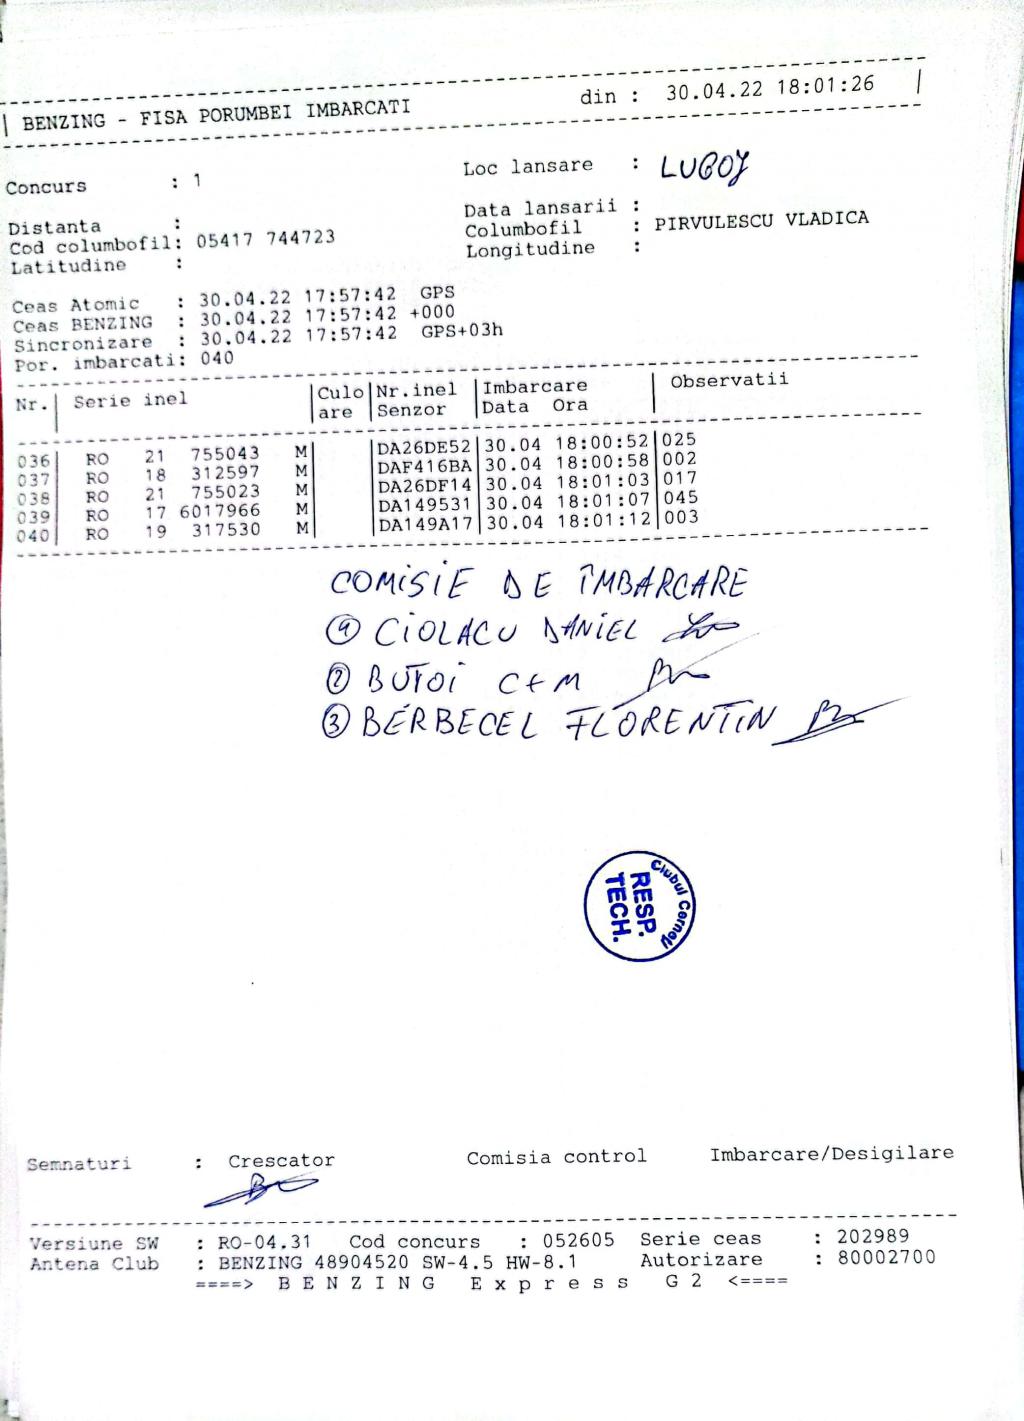 | BENZING - FISA PORUMBEI IMBARCATI din : 30.04.22 18:01:26 |
Concurs : 1 Loc lansare : LUGOJ
Distanta : Data lansarii :
Cod columbofil: 05417 744723 Columbofil : PIRVULESCU VLADICA
Latitudine : Longitudine :
Ceas Atomic : 30.04.22 17:57:42 GPS
Ceas BENZING : 30.04.22 17:57:42 +000
Sincronizare : 30.04.22 17:57:42 GPS+03h
Por. imbarcati: 040
Nr.| Serie inel |Culo|Nr.inel |Imbarcare | Observatii
|are |Senzor |Data Ora |
036| RO 21 755043 M| |DA26DE52|30.04 18:00:52|025
037| RO 18 312597 M| |DAF416BA|30.04 18:00:58|002
038| RO 21 755023 M| |DA26DF14|30.04 18:01:03|017
039| RO 17 6017966 M| |DA149531|30.04 18:01:07|045
040| RO 19 317530 M| |DA149A17|30.04 18:01:12|003
COMISIE DE ÎMBARCARE
① CIOLACU DANIEL
② BUTOI C+M
③ BERBECEL FLORENTIN
Clubul Cerney
RESP.
TECH.
Semnaturi : Crescator Comisia control Imbarcare/Desigilare
Versiune SW : RO-04.31 Cod concurs : 052605 Serie ceas : 202989
Antena Club : BENZING 48904520 SW-4.5 HW-8.1 Autorizare : 80002700
====> B E N Z I N G E x p r e s s G 2 <====